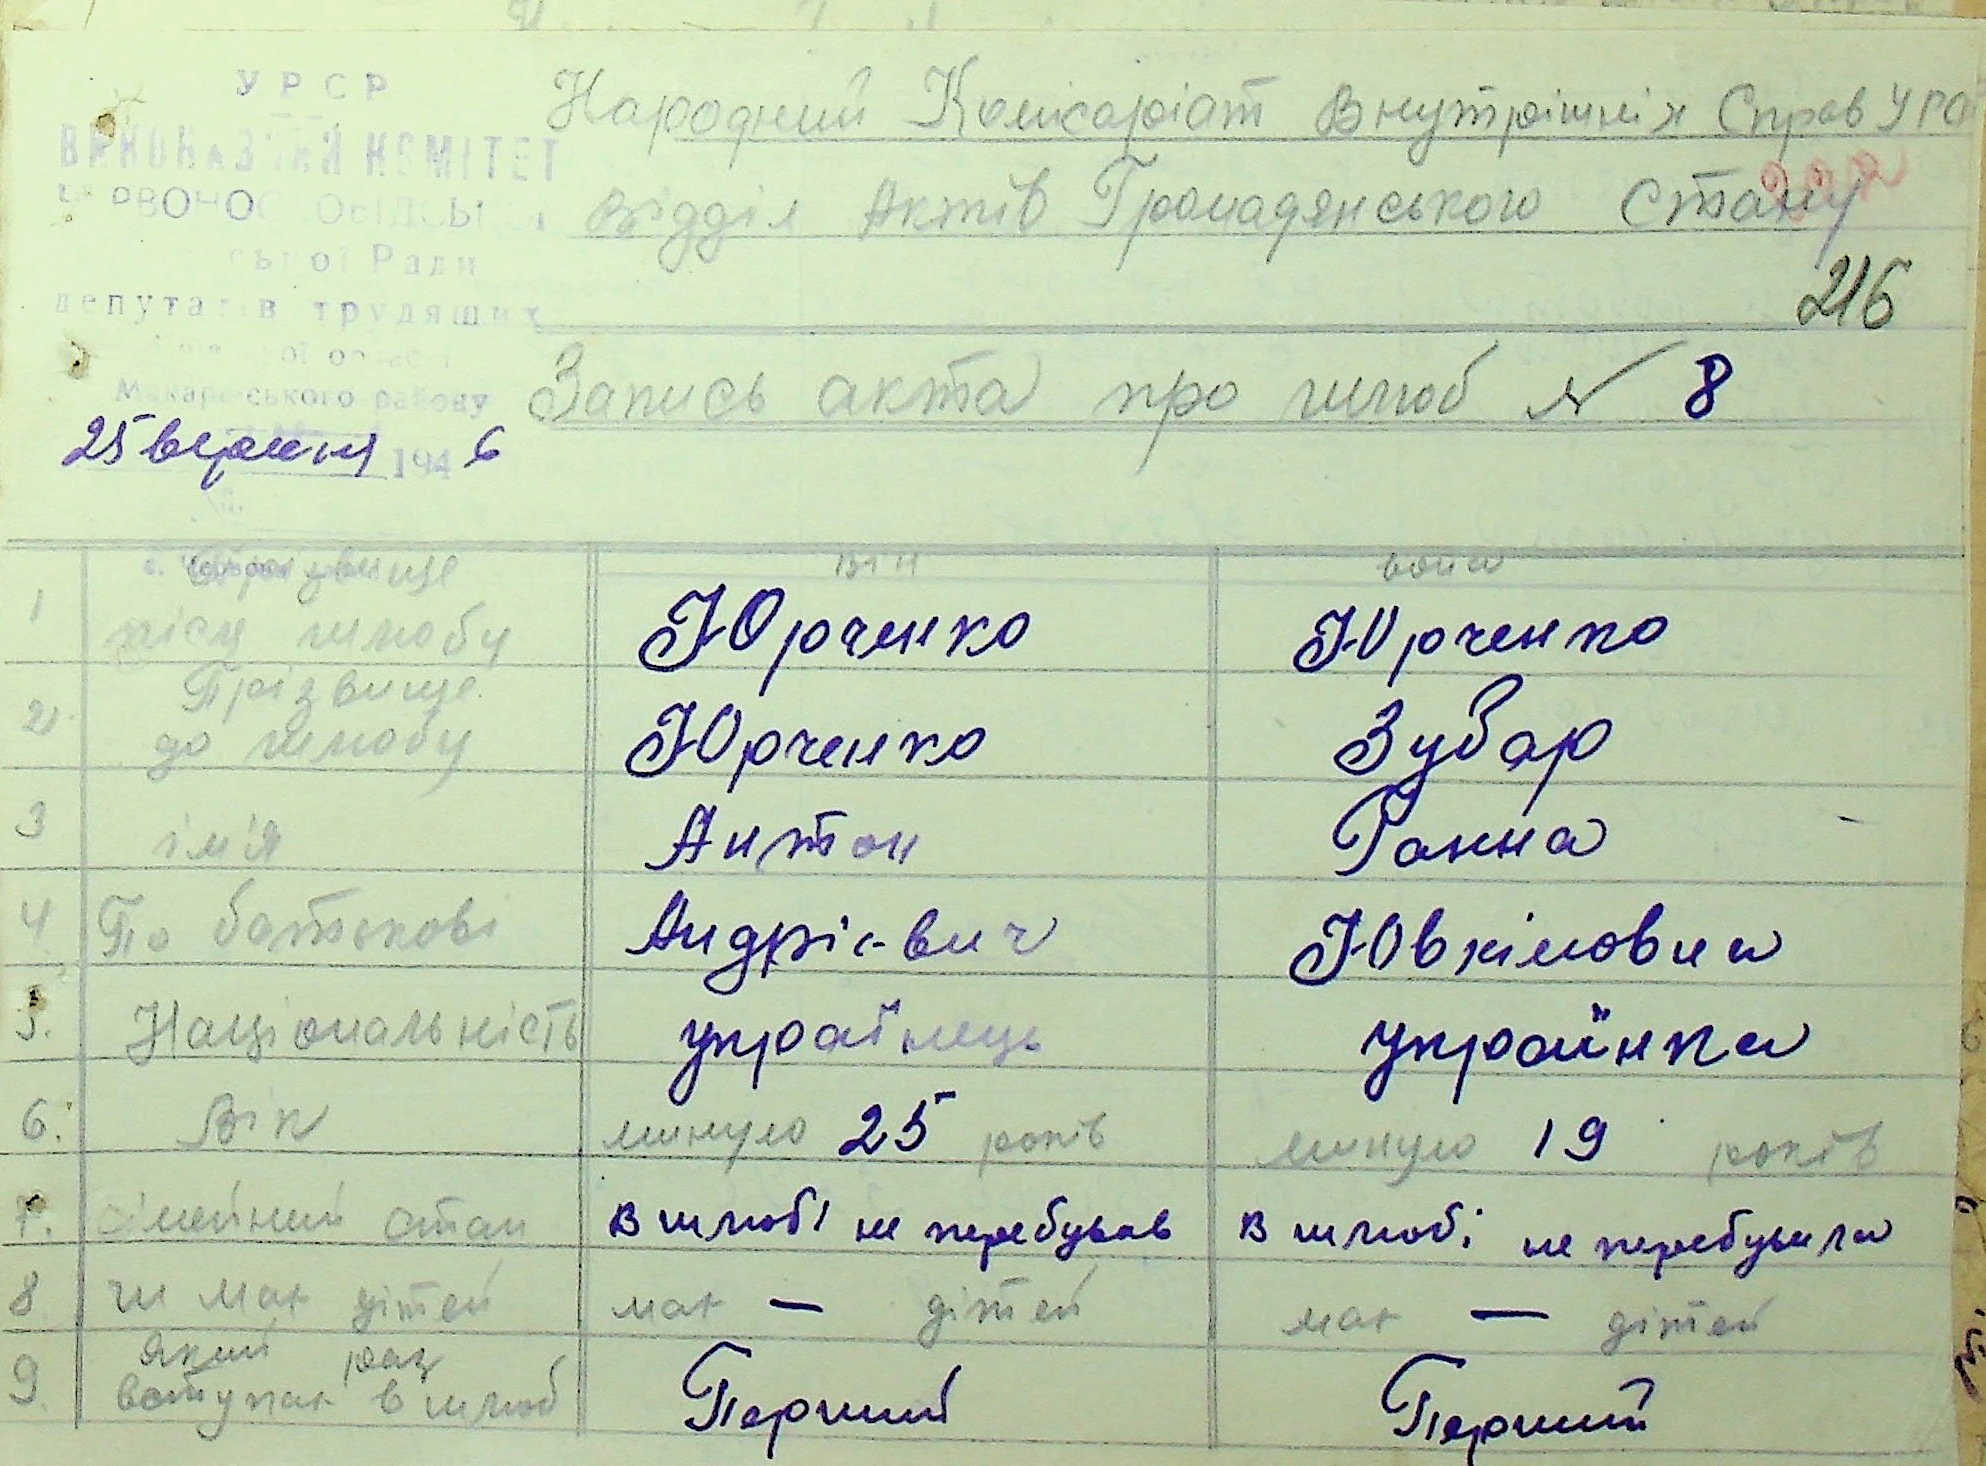 УРСР
ВИКОНАВЧИЙ КОМІТЕТ
ської Ради
депутатів трудящих
Макарівського району
25 вересня 1946
Народний Комісаріат Внутрішніх Справ УРСР
Відділ Актів Громадянського Стану
216
Запись акта про шлюб № 8
він вона
1 Прізвище після шлюбу Юрченко Юрченко
2 Прізвище до шлюбу Юрченко Зубар
3 ім'я Антон Ганна
4 По батькові Андрієвич Ювхімовна
5. Національність українець українка
6. Вік минуло 25 років минуло 19 років
7. сімейний стан в шлюбі не перебував в шлюбі не перебувала
8 чи має дітей має — дітей має — дітей
9. який раз вступає в шлюб Перший Перший